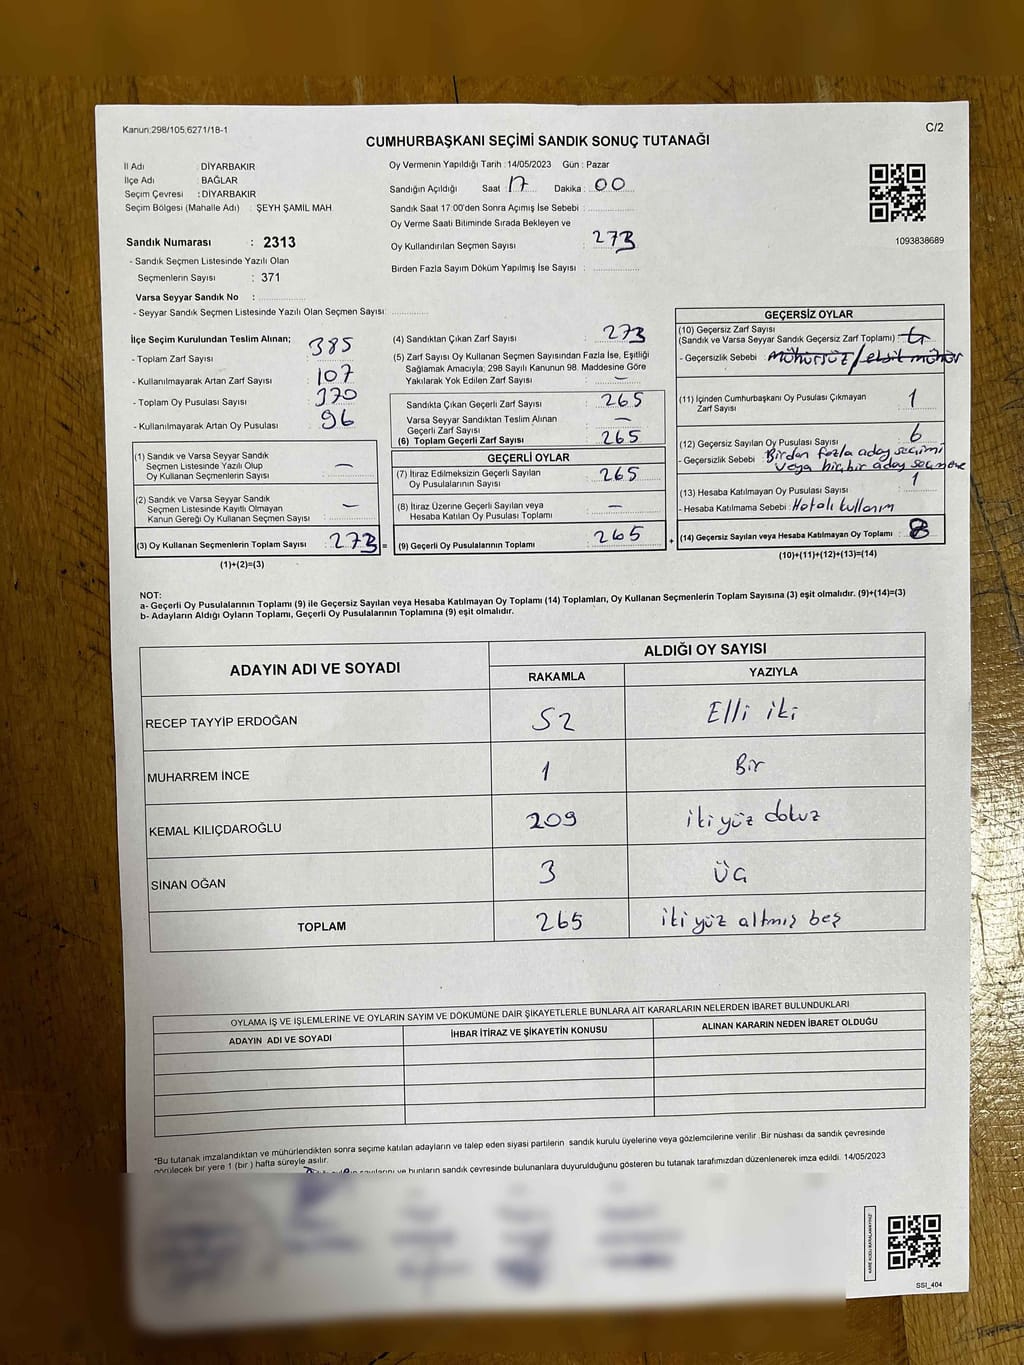 Kanun:298/105,6271/18-1
C/2
CUMHURBAŞKANI SEÇİMİ SANDIK SONUÇ TUTANAĞI
İl Adı : DİYARBAKIR
İlçe Adı : BAĞLAR
Seçim Çevresi : DİYARBAKIR
Seçim Bölgesi (Mahalle Adı) : ŞEYH ŞAMİL MAH.
Sandık Numarası : 2313
- Sandık Seçmen Listesinde Yazılı Olan
Seçmenlerin Sayısı : 371
Varsa Seyyar Sandık No :
- Seyyar Sandık Seçmen Listesinde Yazılı Olan Seçmen Sayısı:
Oy Vermenin Yapıldığı Tarih : 14/05/2023 Gün : Pazar
Sandığın Açıldığı Saat : 17 Dakika : 00
Sandık Saat 17:00'den Sonra Açımış İse Sebebi :
Oy Verme Saati Bitiminde Sırada Bekleyen ve
Oy Kullandırılan Seçmen Sayısı : 273
Birden Fazla Sayım Döküm Yapılmış İse Sayısı :
1093838689
İlçe Seçim Kurulundan Teslim Alınan;
- Toplam Zarf Sayısı : 385
- Kullanılmayarak Artan Zarf Sayısı : 107
- Toplam Oy Pusulası Sayısı : 370
- Kullanılmayarak Artan Oy Pusulası : 96
(1) Sandık ve Varsa Seyyar Sandık
Seçmen Listesinde Yazılı Olup
Oy Kullanan Seçmenlerin Sayısı : —
(2) Sandık ve Varsa Seyyar Sandık
Seçmen Listesinde Kayıtlı Olmayan
Kanun Gereği Oy Kullanan Seçmen Sayısı : —
(3) Oy Kullanan Seçmenlerin Toplam Sayısı : 273 =
(1)+(2)=(3)
(4) Sandıktan Çıkan Zarf Sayısı : 273
(5) Zarf Sayısı Oy Kullanan Seçmen Sayısından Fazla İse, Eşitliği
Sağlamak Amacıyla; 298 Sayılı Kanunun 98. Maddesine Göre
Yakılarak Yok Edilen Zarf Sayısı : —
Sandıkta Çıkan Geçerli Zarf Sayısı : 265
Varsa Seyyar Sandıktan Teslim Alınan
Geçerli Zarf Sayısı : —
(6) Toplam Geçerli Zarf Sayısı : 265
GEÇERLİ OYLAR
(7) İtiraz Edilmeksizin Geçerli Sayılan
Oy Pusulalarının Sayısı : 265
(8) İtiraz Üzerine Geçerli Sayılan veya
Hesaba Katılan Oy Pusulası Toplamı : —
(9) Geçerli Oy Pusulalarının Toplamı : 265 +
GEÇERSİZ OYLAR
(10) Geçersiz Zarf Sayısı
(Sandık ve Varsa Seyyar Sandık Geçersiz Zarf Toplamı) :
- Geçersizlik Sebebi : mühürsüz/eksik mühür
(11) İçinden Cumhurbaşkanı Oy Pusulası Çıkmayan
Zarf Sayısı : 1
(12) Geçersiz Sayılan Oy Pusulası Sayısı : 6
- Geçersizlik Sebebi : Birden fazla aday seçimi
veya hiç bir aday seçmeme
(13) Hesaba Katılmayan Oy Pusulası Sayısı : 1
- Hesaba Katılmama Sebebi : Hatalı kullanım
(14) Geçersiz Sayılan veya Hesaba Katılmayan Oy Toplamı : 8
(10)+(11)+(12)+(13)=(14)
NOT:
a- Geçerli Oy Pusulalarının Toplamı (9) ile Geçersiz Sayılan veya Hesaba Katılmayan Oy Toplamı (14) Toplamları, Oy Kullanan Seçmenlerin Toplam Sayısına (3) eşit olmalıdır. (9)+(14)=(3)
b- Adayların Aldığı Oyların Toplamı, Geçerli Oy Pusulalarının Toplamına (9) eşit olmalıdır.
ADAYIN ADI VE SOYADI
ALDIĞI OY SAYISI
RAKAMLA YAZIYLA
RECEP TAYYİP ERDOĞAN 52 Elli iki
MUHARREM İNCE 1 Bir
KEMAL KILIÇDAROĞLU 209 iki yüz dokuz
SİNAN OĞAN 3 Üç
TOPLAM 265 iki yüz altmış beş
OYLAMA İŞ VE İŞLEMLERİNE VE OYLARIN SAYIM VE DÖKÜMÜNE DAİR ŞİKAYETLERLE BUNLARA AİT KARARLARIN NELERDEN İBARET BULUNDUKLARI
ADAYIN ADI VE SOYADI İHBAR İTİRAZ VE ŞİKAYETİN KONUSU ALINAN KARARIN NEDEN İBARET OLDUĞU
*Bu tutanak imzalandıktan ve mühürlendikten sonra seçime katılan adayların ve talep eden siyasi partilerin sandık kurulu üyelerine veya gözlemcilerine verilir. Bir nüshası da sandık çevresinde
görülecek bir yere 1 (bir) hafta süreyle asılır.
ve bunların sandık çevresinde bulunanlara duyurulduğunu gösteren bu tutanak tarafımızdan düzenlenerek imza edildi. 14/05/2023
SSI_404